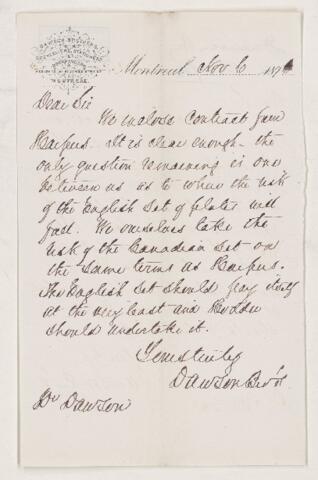 DAWSON BROTHERS
MONTREAL
Montreal, Nov 6 187
Dear Sir
We inclose contract from
Harpers. It is clear enough - the
only question remaining is one
between us as to where the risk
of the English set of plates will
fall. We ourselves take the
risk of the Canadian set on
the same terms as Harpers.
The English set should pay itself
at the very least and Hodder
should undertake it.
Yours truly
Dawson Bros
Dr Dawson